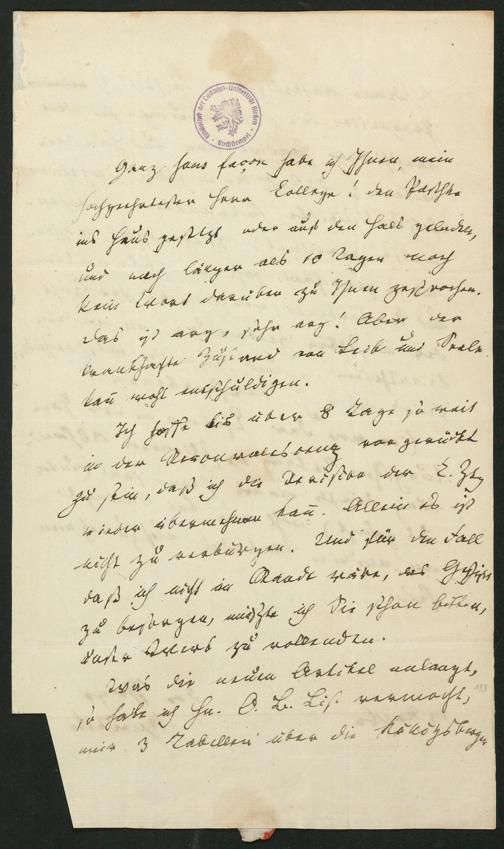 Bibliothek der Ludwigs-Universität Gießen
Ganz sans façon habe ich Ihnen, mein
hochverehrtester Herr College! den
ins Haus gesetzt oder auf den Hals geladen,
und nach länger als 10 Tagen noch
kein Wort darüber zu Ihnen gesprochen.
Das ist arg, sehr arg! Aber der
krankhafte Zustand von Leib und Seele
kann wohl entschuldigen.
Ich hoffe bis über 8 Tage so weit
in der Reconvalescenz vorgerückt
zu sein, daß ich die Revision der L. Ztg
wieder übernehmen kann. Allein es ist
nicht zu verbürgen. Und für den Fall
daß ich nicht im Stande wäre, das Geschäft
zu besorgen, müßte ich Sie schon bitten,
unser Werk zu vollenden.
Was die neuen Artikel anlangt,
so habe ich Hn. O. B. vermocht,
mir 3 Tabellen über die Königsberger